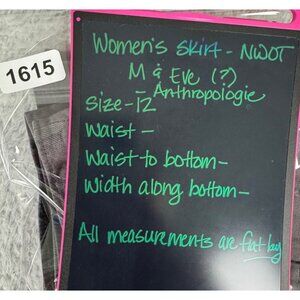 1615
Women's skirt - NWOT
M & Eve (?)
- Anthropologie
Size - 12
Waist -
Waist to bottom -
Width along bottom -
All measurements are flat lay